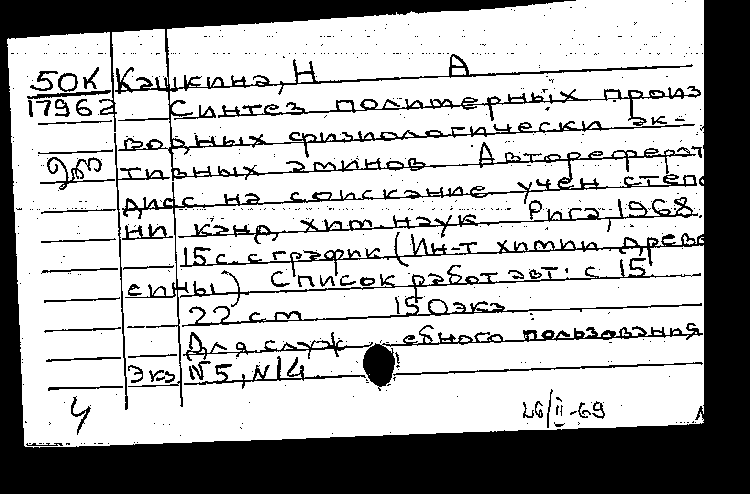 50К Кашкина, Н А
17962 Синтез полимерных произ
водных физиологически ак-
тивных аминов. Автореферат
дисс. на соискание учен степе
ни канд. хим. наук Рига, 1968.
15 с. с график. (Ин-т химии древе
сины). Список работ авт: с 15
22 см 150экз
Для служ ебного пользования
Экз N5, N14
4 26/II-69